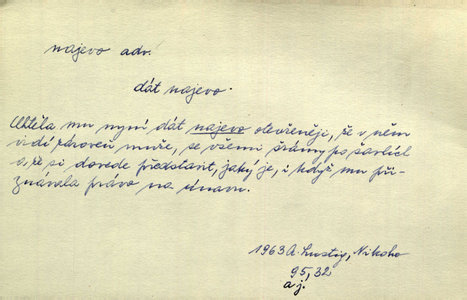 najevo adv.
dát najevo.
Chtěla mu nyní dát najevo otevřeněji, že v něm
vidí zároveň muže, se všemi šrámy po šavlích
a že si dovede představit, jaký je, i když mu při-
znávala právo na únavu.
1963 A. Lustig, Nikoho
95,32
a.j.